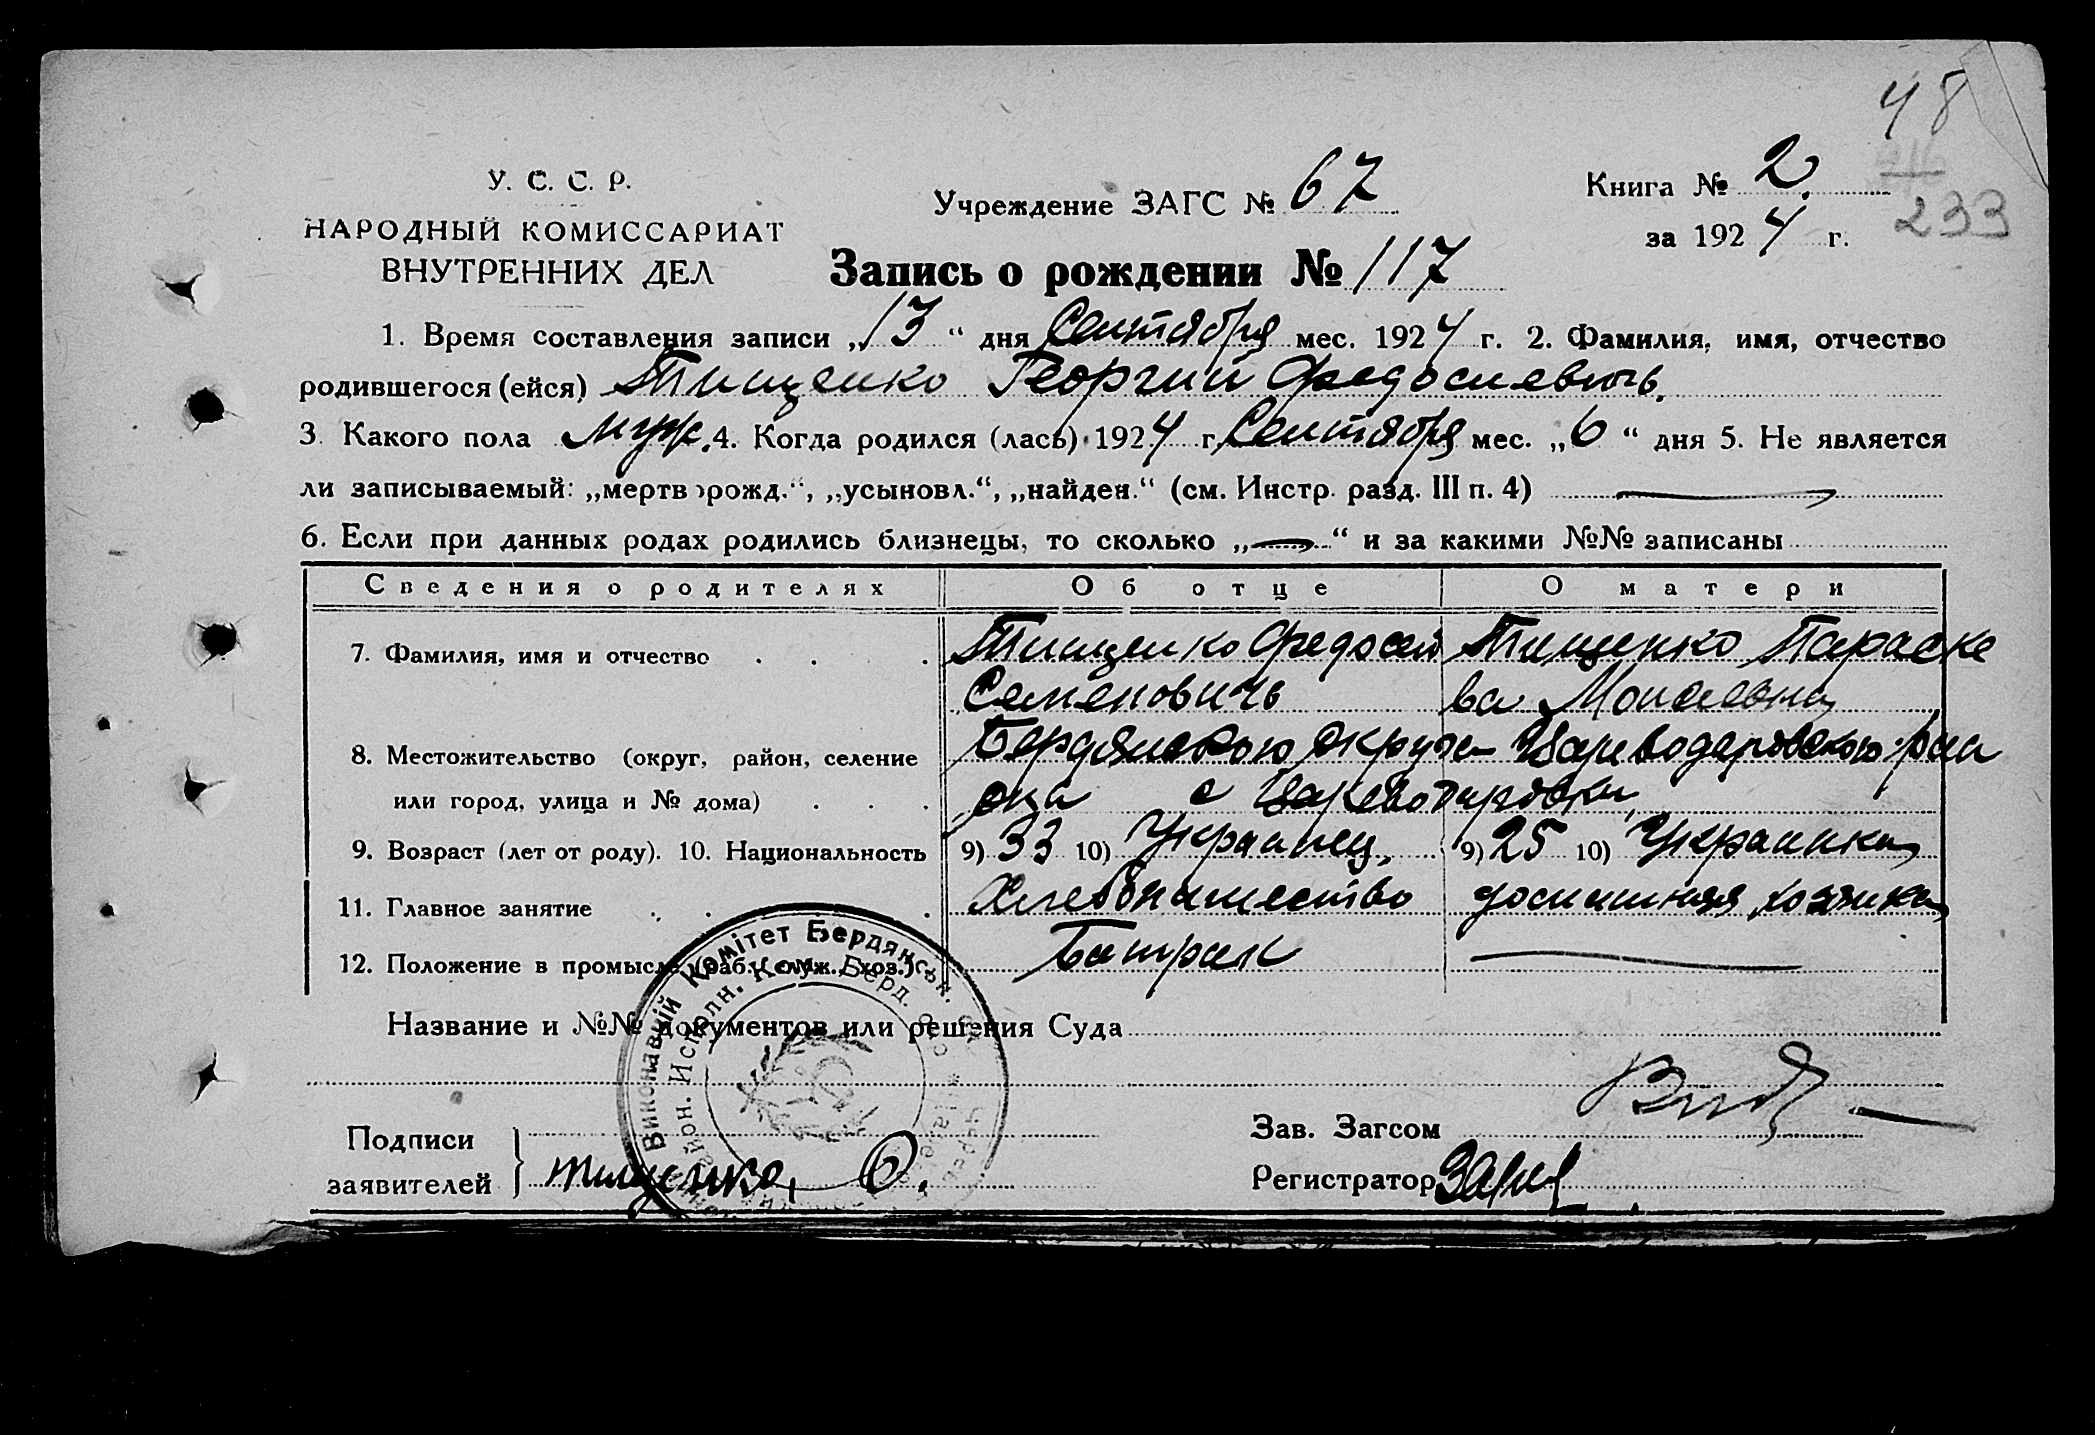 48
У. С. С. Р.
НАРОДНЫЙ КОМИССАРИАТ
ВНУТРЕННИХ ДЕЛ
Учреждение ЗАГС № 67
Книга № 2.
за 1924 г.
233
Запись о рождении № 117
1. Время составления записи „13“ дня Сентября мес. 1924 г. 2. Фамилия, имя, отчество
родившегося (ейся) Тищенко Георгий Федосиевичь.
3 Какого пола муж. 4. Когда родился (лась) 1924 г. Сентября мес. „6“ дня 5. Не является
ли записываемый: „мертворожд.“, „усыновл.“, „найден.“ (см. Инстр. разд. III п. 4)
6. Если при данных родах родились близнецы, то сколько „—“ и за какими №№ записаны
Сведения о родителях Об отце О матери
7. Фамилия, имя и отчество Тищенко Федосий Тищенко Параске
Семеновичь ва Моисеевна
8. Местожительство (округ, район, селение Бердянского округа Цареводаровского рай
или город, улица и № дома) она с Цареводаровка
9. Возраст (лет от роду). 10. Национальность 9) 33 10) Украинец, 9) 25 10) Украинка
11. Главное занятие Хлебопашество домашняя хозяйка
12. Положение в промысле (раб., служ., хоз.) Батрак —
Название и №№ документов или решения Суда
Виконавчий Комітет Бердянськ.
Исполн. Ком. Берд.
Подписи
заявителей Тищенко, О.
Зав. Загсом
Регистратор